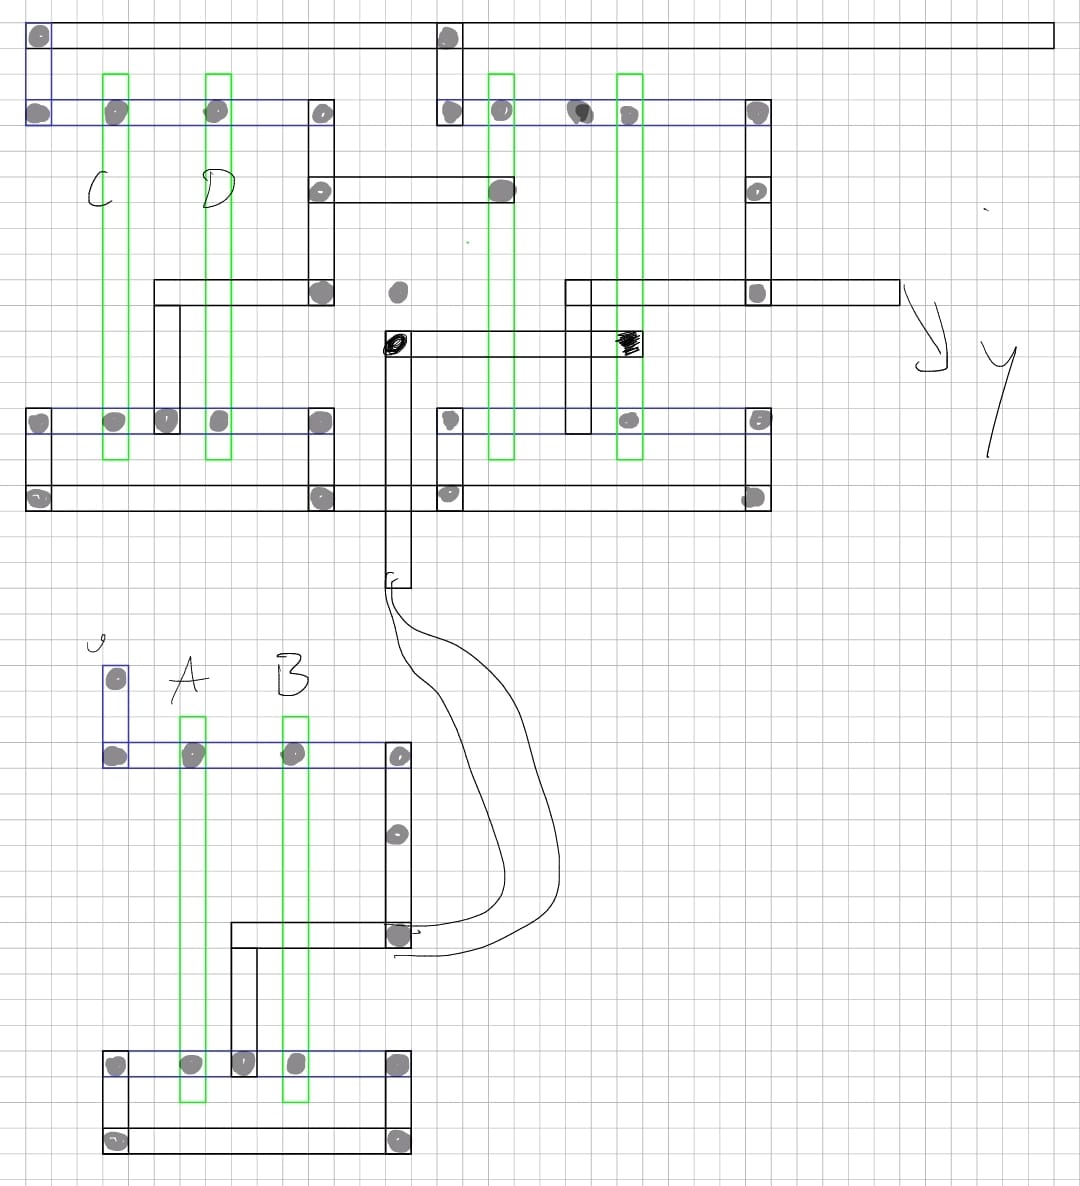 C D
Y
A B